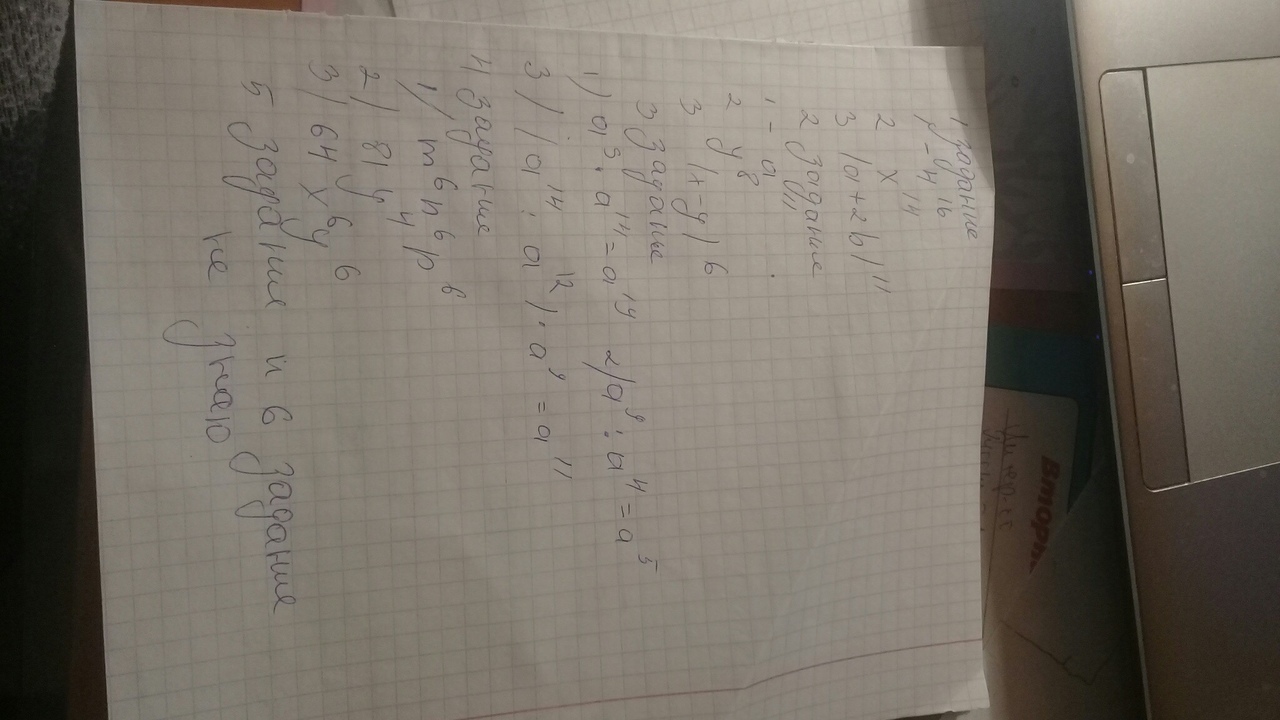 1 задание
1/ -4¹⁶
2 x¹⁴
3 (a+2b)¹¹
2 Задание
1 - a¹¹
2 y⁸
3 (x-y)⁶
3 Задание
1) a⁵ · a¹⁴ = a¹⁹ 2) a⁹ : a⁴ = a⁵
3) (a¹⁴ : a¹²) · a⁹ = a¹¹
4 Задание
1) m⁶n⁶p⁶
2) 81y⁴
3) 64x⁶y⁶
5 Задание и 6 задание
не знаю
Вторн